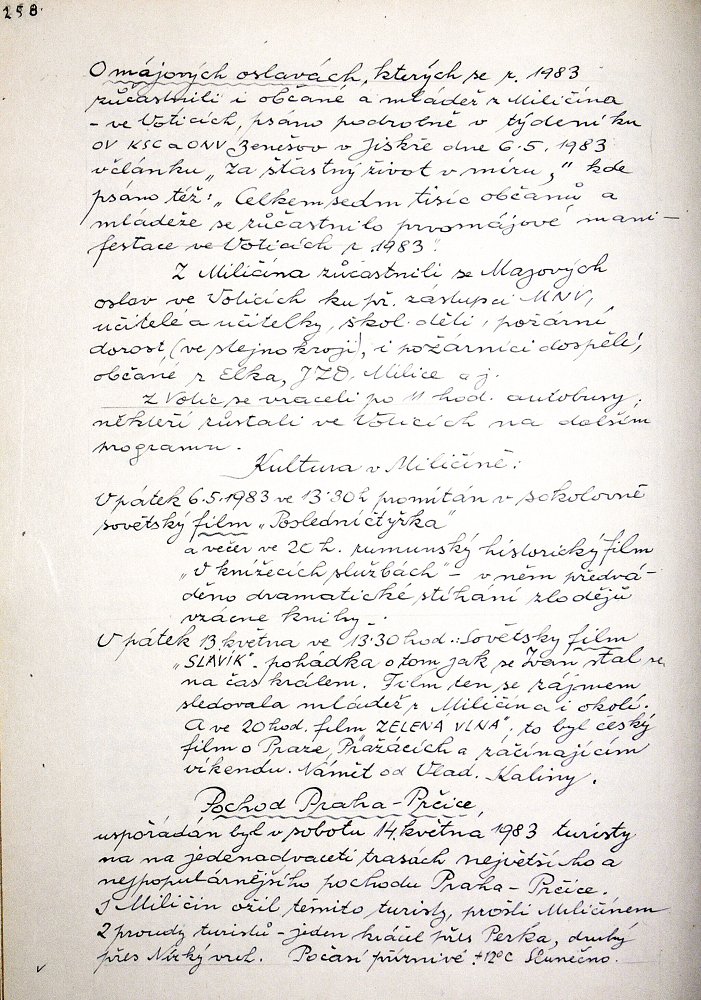 258.
O májových oslavách, kterých se r. 1983
zůčastnili i občané a mládež z Miličína
- ve Voticích, psáno podrobně v týdeníku
OV KSC a ONV Benešov v Jiskře dne 6.5.1983
v článku „Za šťastný život v míru," kde
psáno též: „Celkem sedm tisíc občanů a
mládeže se zůčastnilo prvomájové mani-
festace ve Voticích r. 1983".
Z Miličína zůčastnili se Májových
oslav ve Voticích ku př. zástupci MNV,
učitelé a učitelky, škol. děti, požární
dorost, (ve stejnokroji), i požárníci dospělí,
občané z Elka, JZD. Milice a j.
Z Votic se vraceli po 11 hod. autobusy.
někteří zůstali ve Voticích na dalším
programu.
Kultura v Miličíně:
V pátek 6.5.1983 ve 13.30 h promítán v sokolovně
sovětský film „Poslední čtyřka"
a večer ve 20 h. rumunský historický film
„V knížecích službách" - v něm předvá-
děno dramatické stíhání zlodějů
vzácné knihy -.
V pátek 13. května ve 13.30 hod.: Sovětský film
„SLAVÍK". pohádka o tom jak se Ivan stal se
na čas králem. Film ten se zájmem
sledovala mládež z Miličína i okolí.
A ve 20 hod. film ZELENÁ VLNA", to byl český
film o Praze, Pražácích a začínajícím
víkendu. Námět od Vlad. Kaliny.
Pochod Praha - Prčice,
uspořádán byl v sobotu 14. května 1983 turisty
na na jedenadvaceti trasách největšího a
nejpopulárnějšího pochodu Praha - Prčice.
I Miličín ožil těmito turisty, prošli Miličínem
2 proudy turistů - jeden kráčel přes Perka, druhý
přes Nízký vrch. Počasí příznivé +12°C Slunečno.